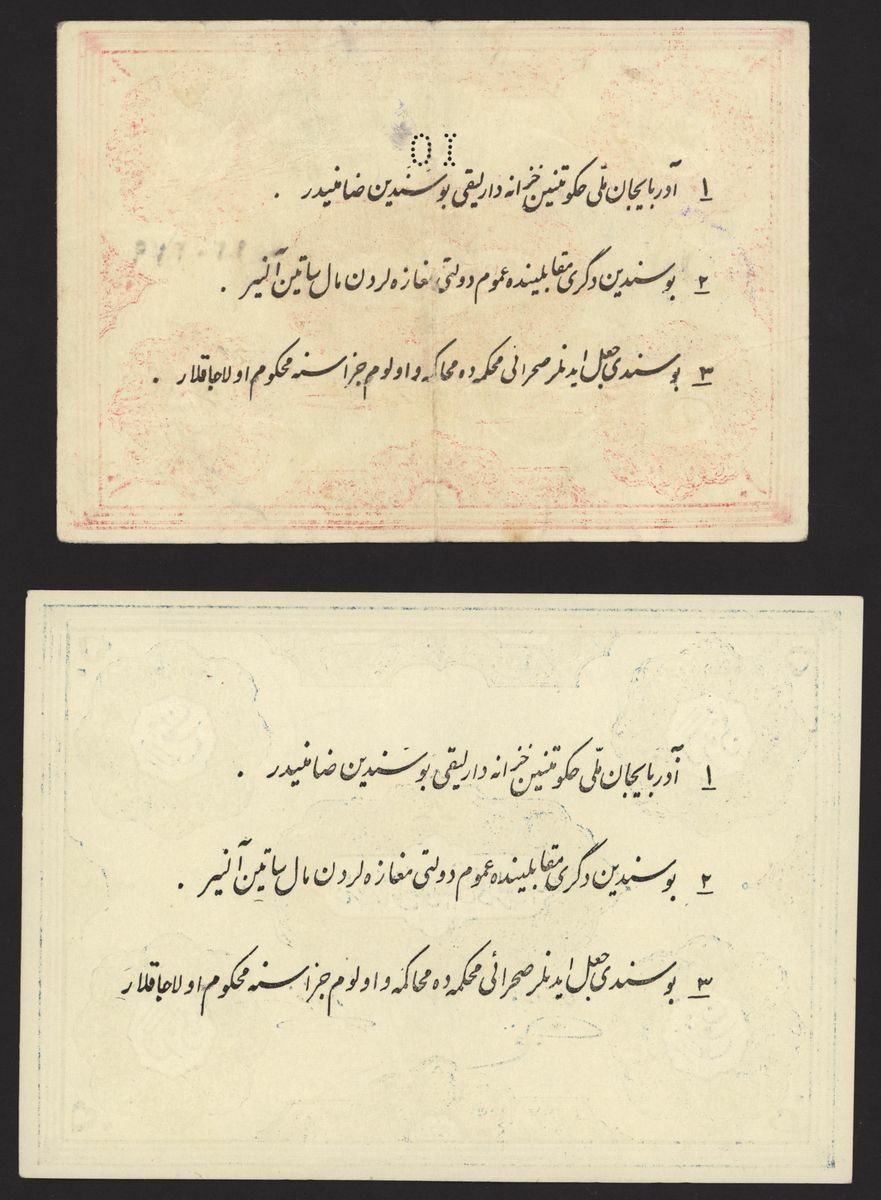 OI
۱ آذربایجان ملّی حکومتنین خزانه دارلیقی بوسندین ضامنیدر .
۲ بوسندین دگری مقابلینده عموم دولتی مغازه لردن مال ساتین آلنیر .
۳ بوسندی جعل ایدنلر صحرائی محکمه ده محاکمه و اولوم جزاسنه محکوم اولاجاقلار .
۱ آذربایجان ملّی حکومتنین خزانه دارلیقی بوسندین ضامنیدر .
۲ بوسندین دگری مقابلینده عموم دولتی مغازه لردن مال ساتین آلنیر .
۳ بوسندی جعل ایدنلر صحرائی محکمه ده محاکمه و اولوم جزاسنه محکوم اولاجاقلار